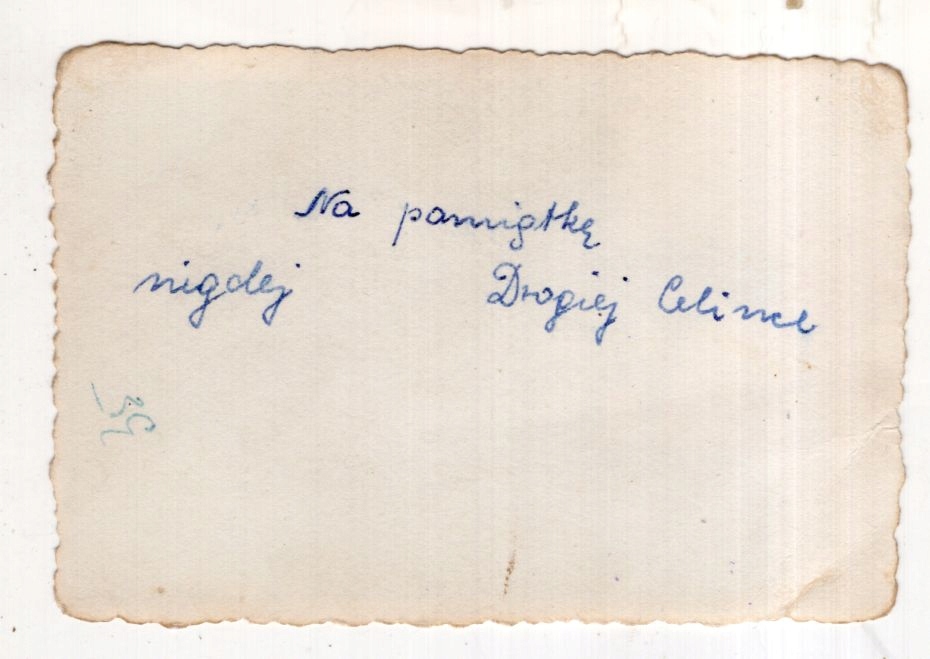 Na pamiątkę
nigdej Drogiej Celince